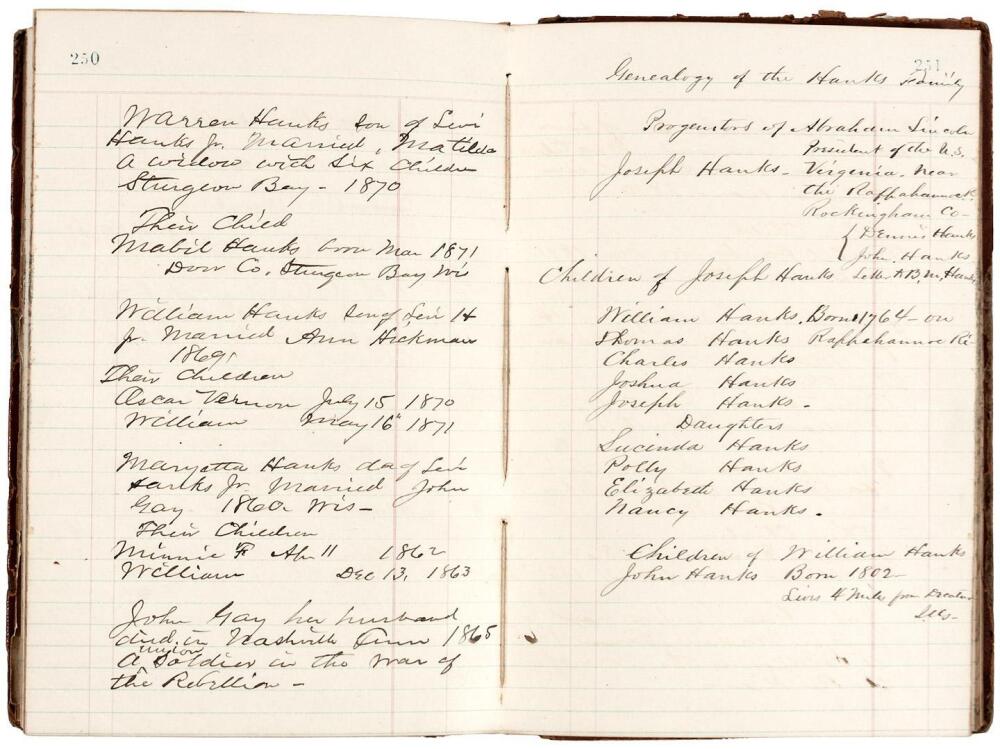 250
Warren Hanks son of Levi
Hanks Jr. Married, Matilda
A widow with six Children
Sturgeon Bay - 1870
Their Child
Mabil Hanks born Mar 1871
Door Co, Sturgeon Bay Wis
William Hanks son of Levi H
Jr. Married Ann Hickman
1869,
Their Children
Oscar Vernon July 15 1870
William May 16" 1871
Maryetta Hanks dag Levi
Hanks Jr Married John
Gay 1860. Wis-
Their Children
Minnie F Ap 11 1862
William Dec 13, 1863
John Gay her husband
died in Nashville Tenn 1865
A union Soldier in the war of
the Rebellion -
251
Genealogy of the Hanks Family
Progenitors of Abraham Lincoln
President of the U.S.
Joseph Hanks - Virginia. Near
the Rappahannock
Rockingham Co-
{ Dennis Hanks
John, Hanks
Children of Joseph Hanks Letter to B, M, Hanks
William Hanks. Born 1764 - on
Thomas Hanks Rappahannoc Ri-
Charles Hanks
Joshua Hanks
Joseph Hanks -
Daughters
Lucinda Hanks
Polly Hanks
Elizabeth Hanks
Nancy Hanks.
Children of William Hanks
John Hanks Born 1802
Livs 4 Miles from Decatur
Ills-